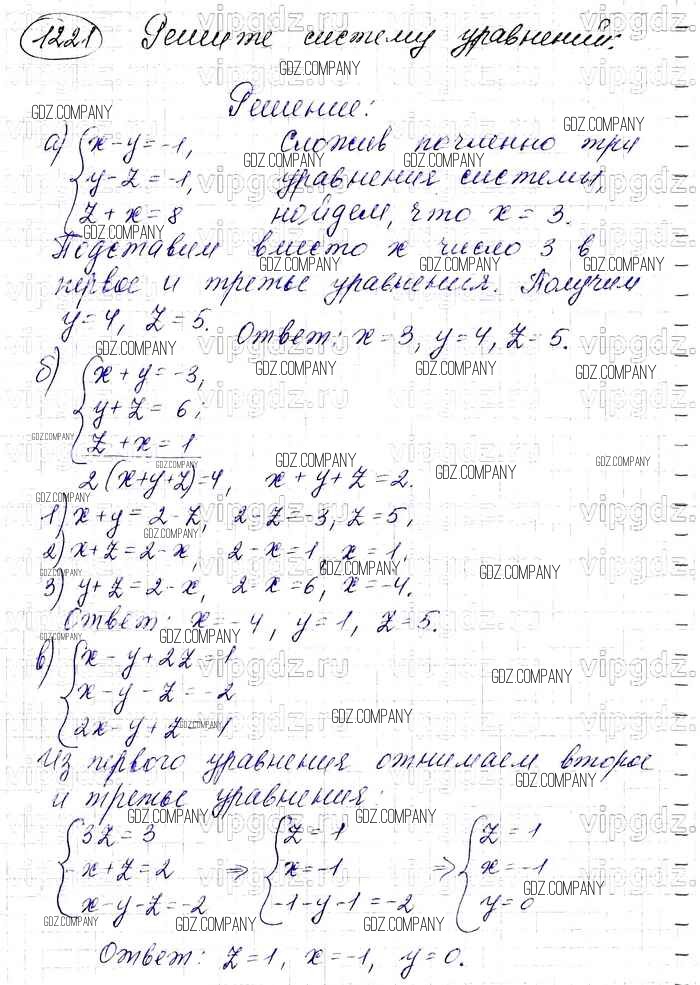 1221 Решите систему уравнений:
Решение:
а) { x - y = -1, Сложив почленно три
y - z = -1, уравнения системы,
z + x = 8 найдем, что x = 3.
Подставим вместо x число 3 в
первое и третье уравнения. Получим
y = 4, z = 5. Ответ: x = 3, y = 4, z = 5.
б) { x + y = -3,
y + z = 6;
z + x = 1
2(x+y+z) = 4, x + y + z = 2.
1) x + y = 2 - z, 2 - z = -3, z = 5,
2) x + z = 2 - x, 2 - x = 1, x = 1,
3) y + z = 2 - x, 2 - x = 6, x = -4.
Ответ: x = -4, y = 1, z = 5.
в) { x - y + 2z = 1
x - y - z = -2
2x - y + z = 1
Из первого уравнения отнимаем второе
и третье уравнения:
{ 3z = 3 ⇒ { z = 1 ⇒ { z = 1
-x + z = 2 x = -1 x = -1
x - y - z = -2 -1 - y - 1 = -2 y = 0
Ответ: z = 1, x = -1, y = 0.
GDZ.COMPANY
vipgdz.ru